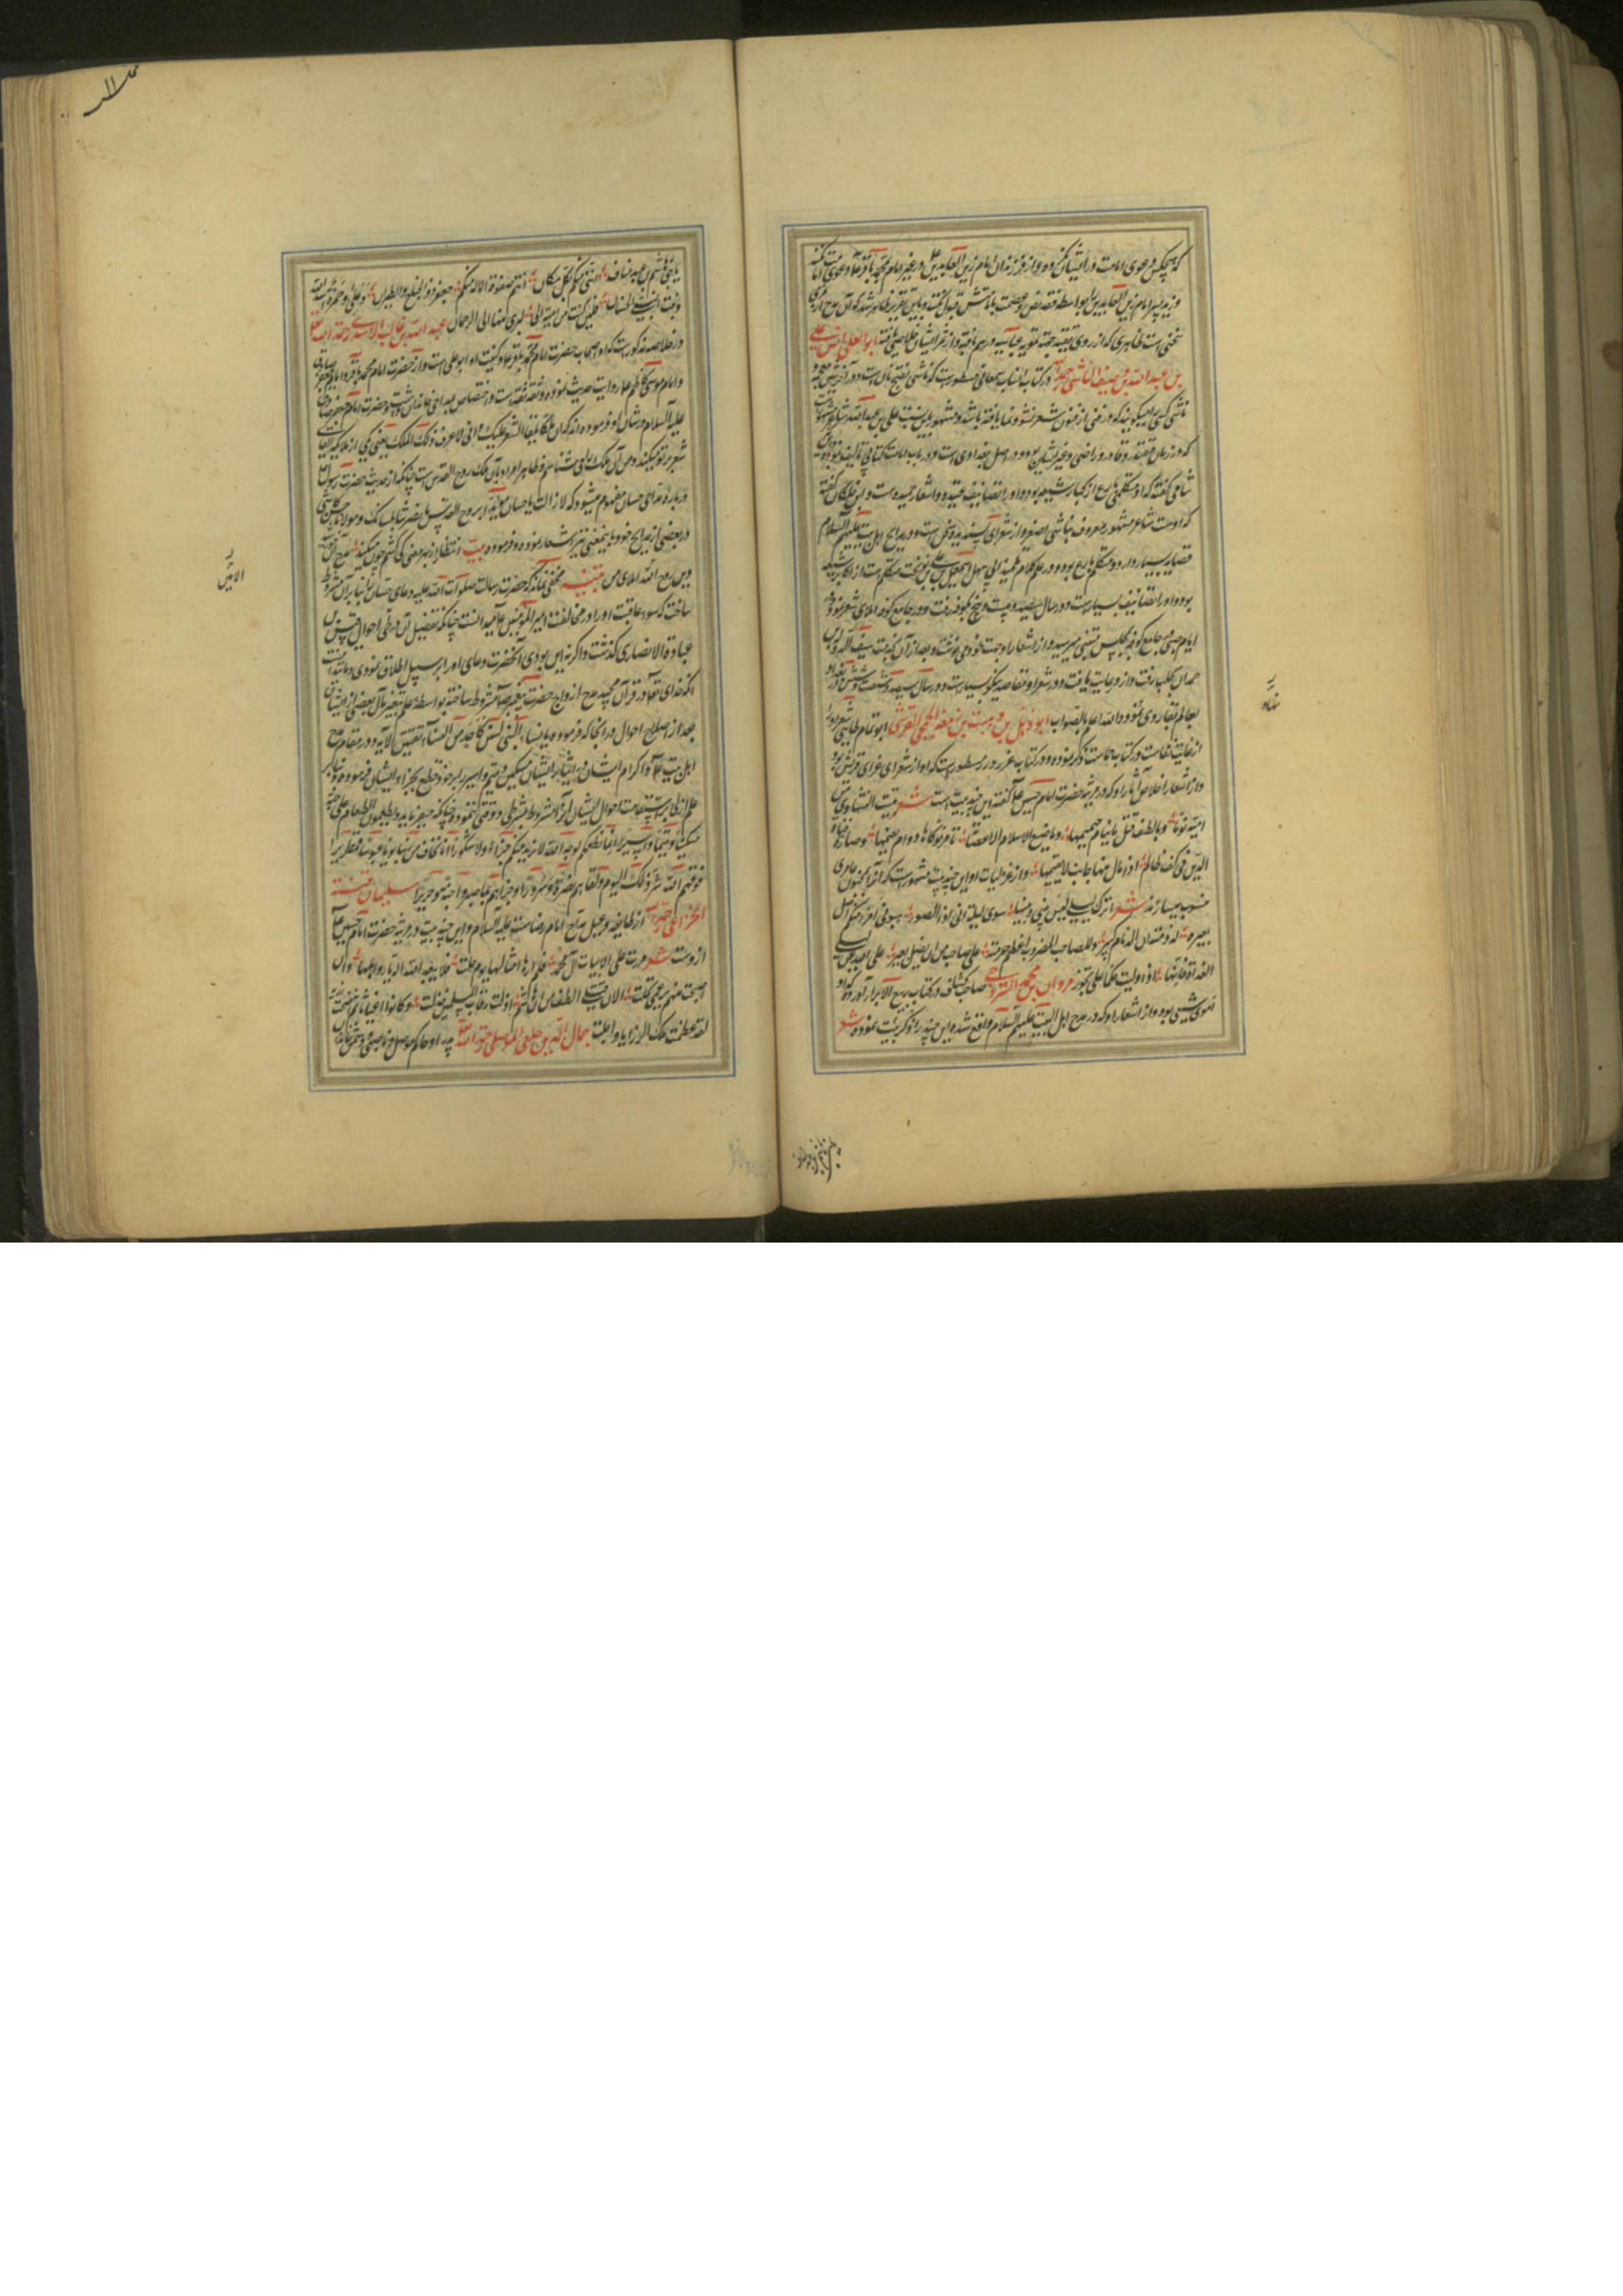 که هیچکس دعوی امامت در ایشان نکرده و از فرزندان امام زین العابدین علی در غیر امام محمد باقر علیه دعوی امامت نکنند
و زید پسر امام زین العابدین را بواسطه فقد نص و عصمت بامامتش قبول نکنند و باین تقریر ظاهر شد که آن مدح از
سخنی است ظاهری که از روی تقیه
بن عبد الله بن وصیف الناشی در کتاب انساب سمعانی مسطورست که ناشی بفتح نون است و در آخرش شین
ناشی کسی را میگویند که در فنی از فنون شعر نشو و نما یافته باشد و مشهور باین نسبت علی بن عبد الله شاعر مشهور
که در زمان مقتدر و قادر و راضی و غیر ایشان بوده و در اصل بغدادی است و در باب امامت کتابی تالیف نموده
شامی گفته که او متکلمی بارع از کبار شیعه بوده و او را تصانیف عدیده و اشعار حمیده است و ابن خلکان گفته
که اوست شاعر مشهور معروف بناشی اصغر و از شعرای پسندیده است و در مدایح اهل بیت علیهم السلام
قصاید بسیار دارد و متکلم بارع بوده و در علم کلام تلمیذ ابی سهل اسمعیل بن علی بن نوبخت متکلم است از اکابر شیعه
بوده و او را تصانیف بسیارست و در سال سیصد و بیست و پنج بکوفه رفت و در جامع کوفه املای شعر نمود و
ایام صبی جامع کوفه بمجلس متنبی میرسید و از اشعار او جهت خود می نوشت و بعد از آن بخدمت سیف الدوله بن
حمدان بحلب رفت و از او رعایت یافت و در شعر او مقاصد نیکو بسیارست و در سال سیصد و شصت و شش در بغداد
بعالم بقا روی نمود و الله اعلم بالصواب ابو دهبل بن وهب بن زمعه الجمحی القرشی ابو تمام طائی شعر او را
از غایت نفاست در کتاب حماست ذکر نموده و در کتاب غرر و درر مسطورست که او از شعرای غرای قریش بود
و از اشعار اخلاص آثار او که در مرثیه حضرت امام حسین علیه گفته این چند بیت است شعر تبیت النشاوی من
امیة نوما و بالطف قتلی ما ینام حمیمها وما ضیع الاسلام الا عصابة تامر نوکاها و دام نعیمها و صارت قناة
الدین فی کف ظالم اذا مال منها جانب لا یقیمها و از غزلیات او این چند بیت مشهورست که آنرا بمجنون عامری
منسوب میسازند شعر اترک لیلی لیس بینی و بینها سوی لیلة انی اذا لصبور هبونی امرأ منکم اضل
بعیره له ذمة ان الذمام کبیر و للصاحب المتروک اعظم حرمة علی صاحب من ان یضل بعیر عفا الله عن لیلی
الغداة فانها اذا ولیت حکما علی تجور مروان بن محمد السروجی صاحب کشاف در کتاب ربیع الابرار آورده که او
اموی شیعی بود و از اشعار او که در مدح اهل البیت علیهم السلام واقع شده این چند را ذکر نموده شعر
یا بنی هاشم بن عبد مناف اننی منکم بکل مکان انتم صفوة الاله و منکم جعفر ذو الجناح و الطیران و علی و حمزة اسد الله
و بنت النبی و الحسنان فلئن کنت من امیة انی لبری منها الی الرحمان عبد الله بن غالب الاسدی رحمه الله
در خلاصه مذکورست که او اصحاب حضرت امام محمد باقر علیه و کنیت او ابو علی است و از حضرت امام محمد باقر و امام جعفر صادق
و امام موسی کاظم علیه روایت حدیث نموده و ثقه ثقه است و اختصاص بمداحی خاندان داشت و حضرت امام جعفر صادق
علیه السلام در شان او فرموده اند که ان ملکا یلقی الشعر علیک و انی لاعرف ذلک الملک یعنی یکی از ملایکه القای
شعر بر تو میکند و من آن ملک را می شناسم و ظاهرا مراد بآن ملک روح القدس است چنانکه از حدیث حضرت رسول
درباره مداحی حسان مفهوم میشود که لا زالت یا حسان مؤیدا بروح القدس ما نصرتنا بلسانک و مولانا حسن کاشی
در بعضی از مدایح خود باین معنی نیز اشعار نموده و فرموده بیت
تنبیه مخفی نماند که حضرت رسالت صلوات الله علیه دعای حسان را بنا بر آن مشروط
ساخت که سوء عاقبت او را در مخالفت امیر المؤمنین علیه میدانست چنانکه تفصیل آن در طی احوال قیس بن
عباده الانصاری گذشت و اگر نه این بودی آنحضرت دعای او را بر سبیل اطلاق نمودی و مانند اینست
آنکه خدای تعالی در قرآن مجید مدح ازواج حضرت پیغمبر را مشروط ساخته بواسطه علم بتغیر حال بعضی از ایشان
بعد از صلاح احوال در آنجا که فرموده یا نساء النبی لستن کاحد من النساء ان اتقیتن الآیه و در مقام مدح
اهل بیت علیه و اکرام ایشان در ایثار ایشان مسکین و یتیم و اسیر را بر خود قطع بجزاء ایشان فرموده و بنا بر
علم ازلی باستقامت احوال ایشان آنرا مشروط بشرطی و وقتی ننموده چنانکه میفرماید و یطعمون الطعام علی حبه
مسکینا و یتیما و اسیرا انما نطعمکم لوجه الله لا نرید منکم جزاء ولا شکورا انا نخاف من ربنا یوما عبوسا قمطریرا
فوقیهم الله شر ذلک الیوم و لقاهم نضرة و سرورا و جزاهم بما صبروا جنة و حریرا سلیمان بن قتة
الخزاعی رحمه الله از طایفه دعبل مداح امام رضاست علیه السلام و این چند بیت در مرثیه حضرت امام حسین علیه
ازوست شعر مررت علی ابیات آل محمد فلم ارها امثالها یوم حلت فلا یبعد الله الدیار و اهلها و ان
اصبحت منهم برغمی تخلت الا ان قتلی الطف من آل هاشم اذلت رقاب المسلمین فذلت و کانوا غیاثا ثم اضحوا رزیة
لقد عظمت تلک الرزایا و جلت جمال الدین خلعی الموصلی رحمه الله پدر او حاکم موصل